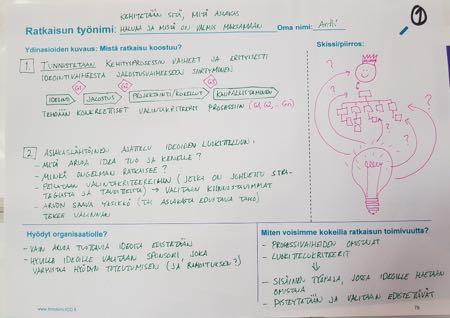 KEHITETÄÄN SITÄ, MITÄ ASIAKAS
Ratkaisun työnimi: HALUAA JA MISTÄ ON VALMIS MAKSAMAAN
Oma nimi: Antti
1
Ydinasioiden kuvaus: Mistä ratkaisu koostuu?
Skissi/piirros:
1 TUNNISTETAAN KEHITYSPROSESSIN VAIHEET JA ERITYISESTI
IDEOINTIVAIHEESTA JALOSTUSVAIHEESEEN SIIRTYMINEN
G1 G2 G3
IDEOINTI JALOSTUS PROJEKTOINTI/KOKEILUT KAUPALLISTAMINEN
TEHDÄÄN KONKREETTISET VALINTAKRITEERIT PROSESSIIN (G1, G2, - Gn)
2 ASIAKASLÄHTÖINEN AJATTELU IDEOIDEN LUOKITTELUUN:
- MITÄ ARVOA IDEA TUO JA KENELLE?
- MINKÄ ONGELMAN RATKAISEE?
- PEILATAAN VALINTAKRITEEREIHIN (JOTKA ON JOHDETTU STRA-
TEGIASTA JA TAVOITTEISTA) → VALITAAN KIINNOSTAVIMMAT
- ARVON SAAVA YKSIKKÖ (TAI ASIAKASTA EDUSTAVA TAHO)
TEKEE VALINNAN
? ? ? ? ? ?
IDEA
Hyödyt organisaatiolle?
- VAIN ARVOA TUOTTAVIA IDEOITA EDISTETÄÄN
- HYVILLE IDEOILLE VALITAAN SPONSORI, JOKA
VARMISTAA HYÖDYN TOTEUTUMISEN (JA RAHOITUKSEN?)
Miten voisimme kokeilla ratkaisun toimivuutta?
- PROSESSIVAIHEIDEN OMISTAJAT
- LUOKITTELUKRITEERIT
- SISÄINEN TYÖPAJA, JOSSA IDEOILLE HAETAAN
OMISTAJA
- PISTEYTETÄÄN JA VALITAAN EDISTETTÄVÄT